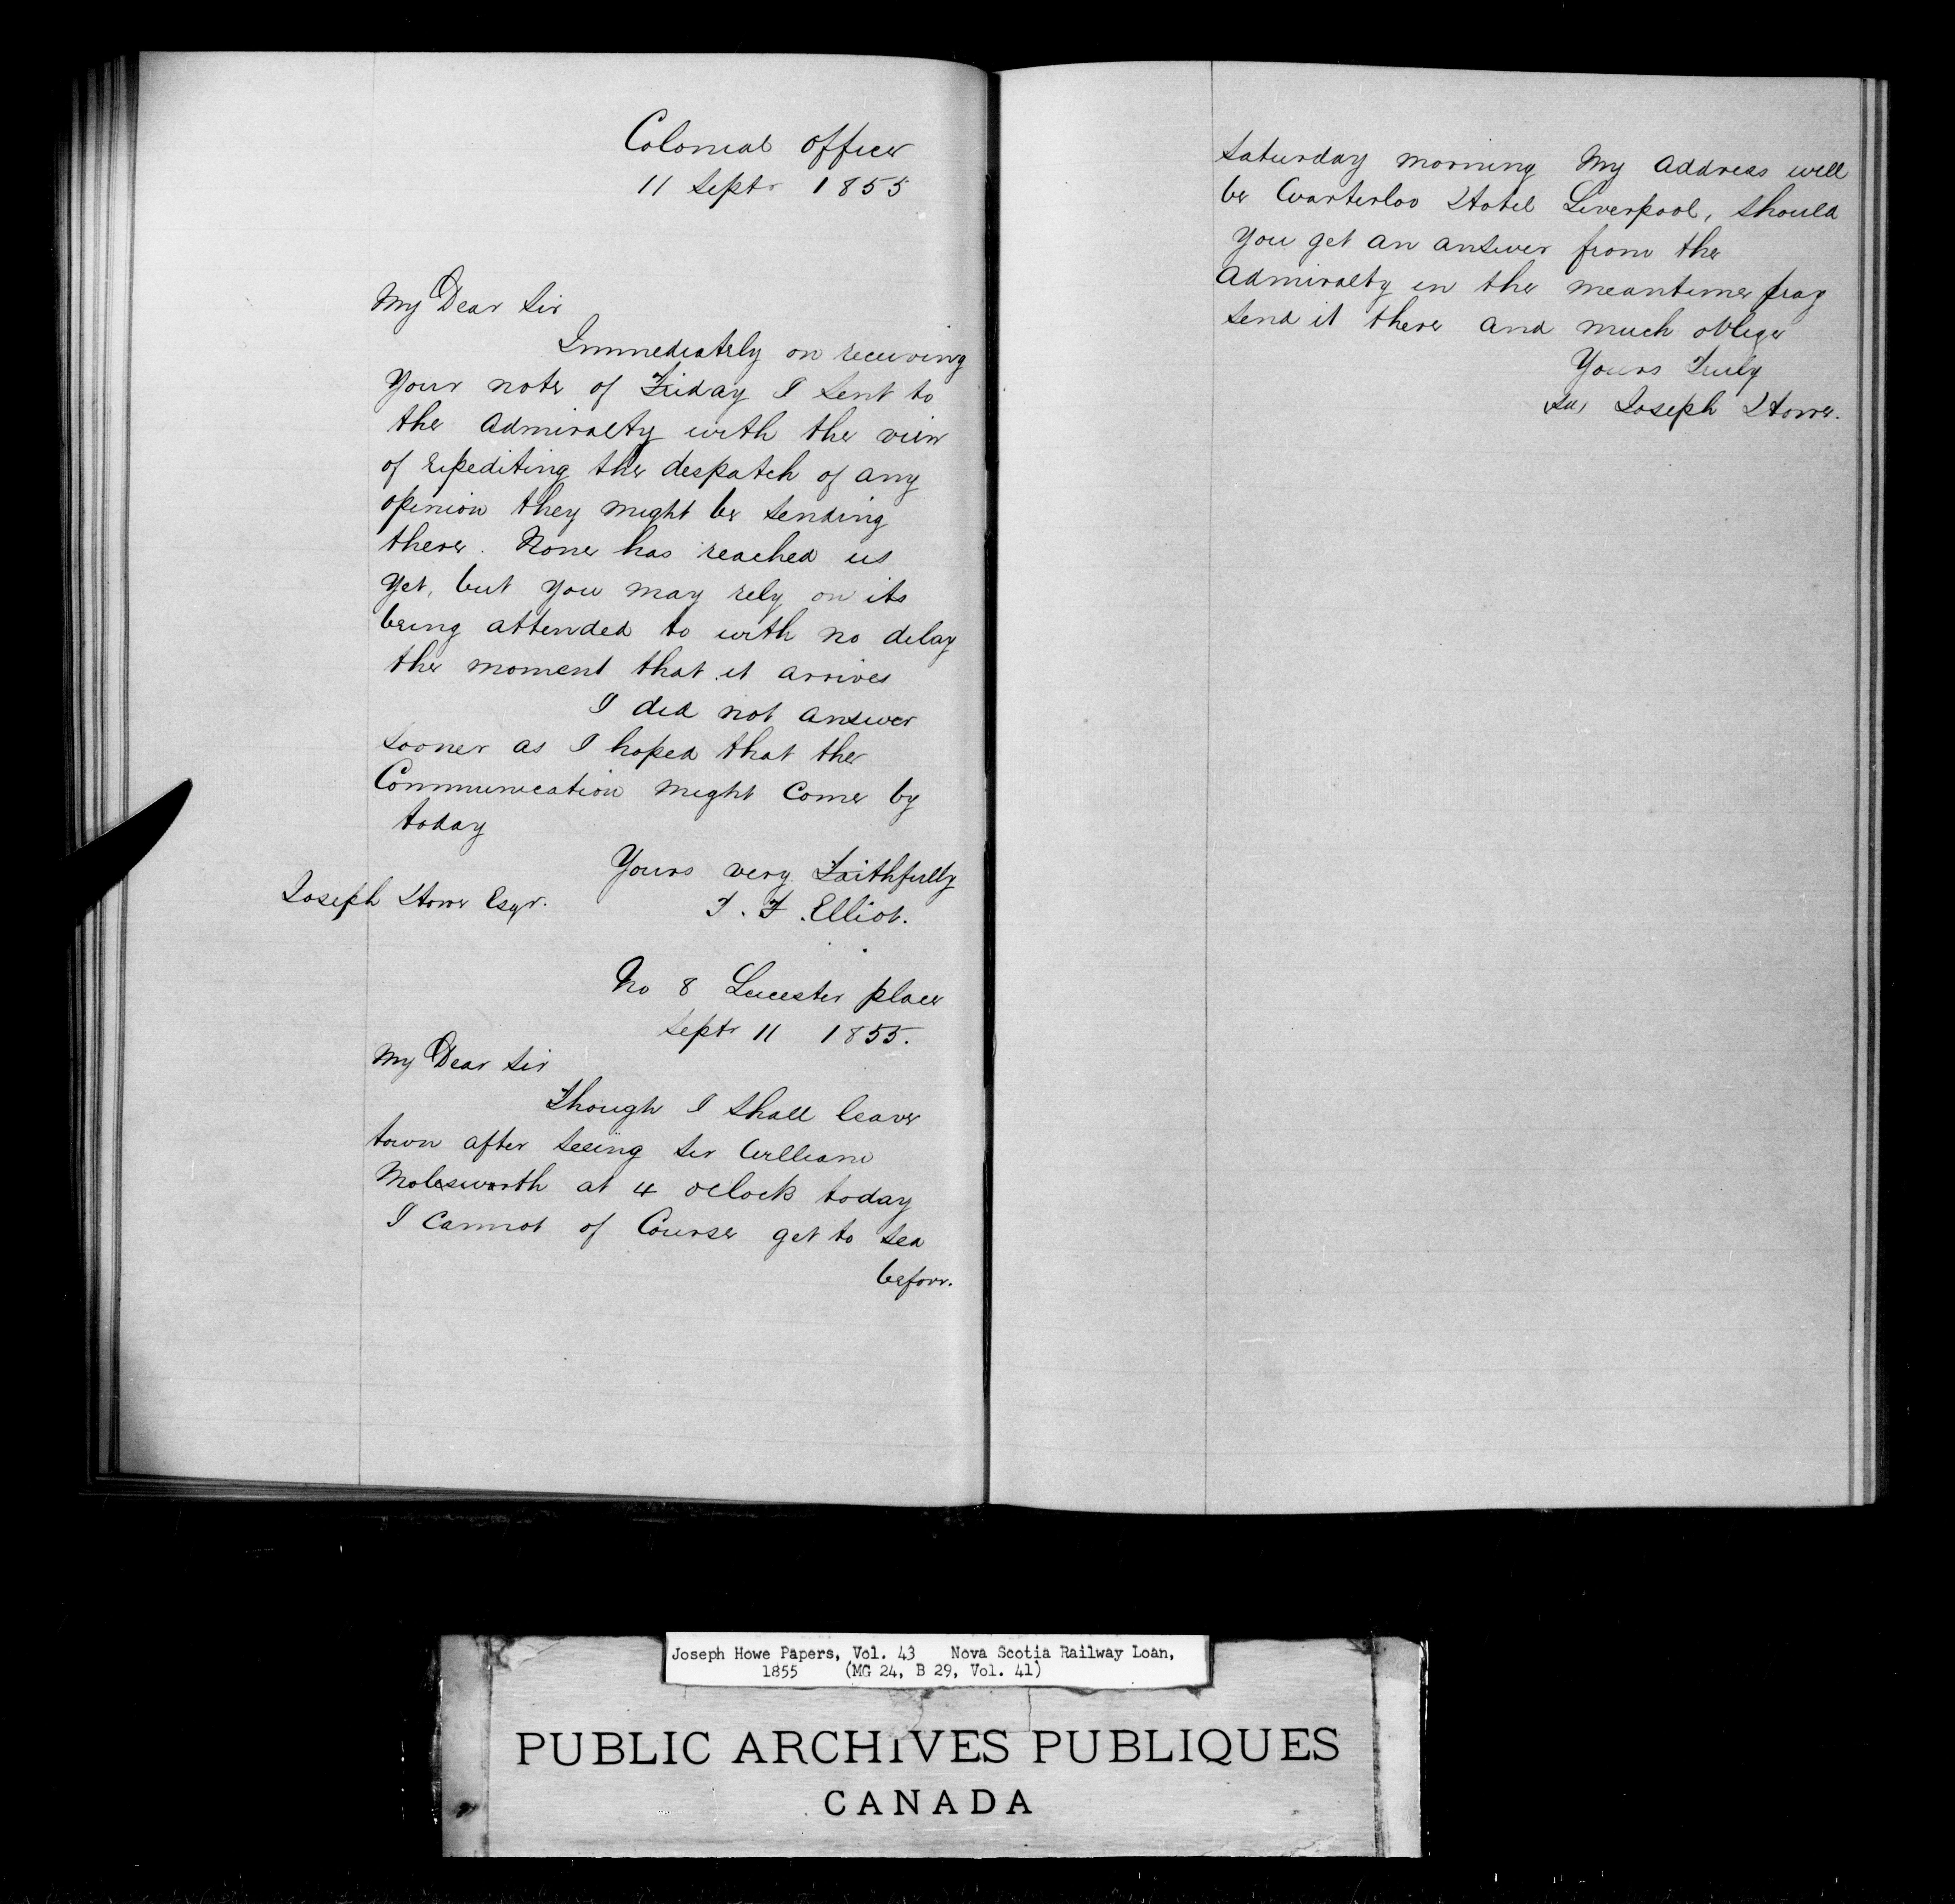 Colonial office
11 Septr 1855
My Dear Sir
Immediately on receiving
your note of Friday I sent to
the Admiralty with the view
of expediting the despatch of any
opinion they might be sending
there. None has reached us
yet, but you may rely on its
being attended to with no delay
the moment that it arrives
I did not answer
sooner as I hoped that the
Communication might come by
today
Yours very Faithfully
Joseph Howe Esqr.
T. F. Elliot.
No 8 Leicester place
Septr 11 1855.
My Dear Sir
Though I shall leave
town after seeing Sir William
Molesworth at 4 oClock today
I cannot of Course get to sea
before.
Saturday morning My address will
be Warterloo Hotel Liverpool, should
you get an answer from the
Admiralty in the meantime pray
send it there and much oblige
Yours Truly
Sd, Joseph Howe.
Joseph Howe Papers, Vol. 43 Nova Scotia Railway Loan,
1855 (MG 24, B 29, Vol. 41)
PUBLIC ARCHIVES PUBLIQUES
CANADA